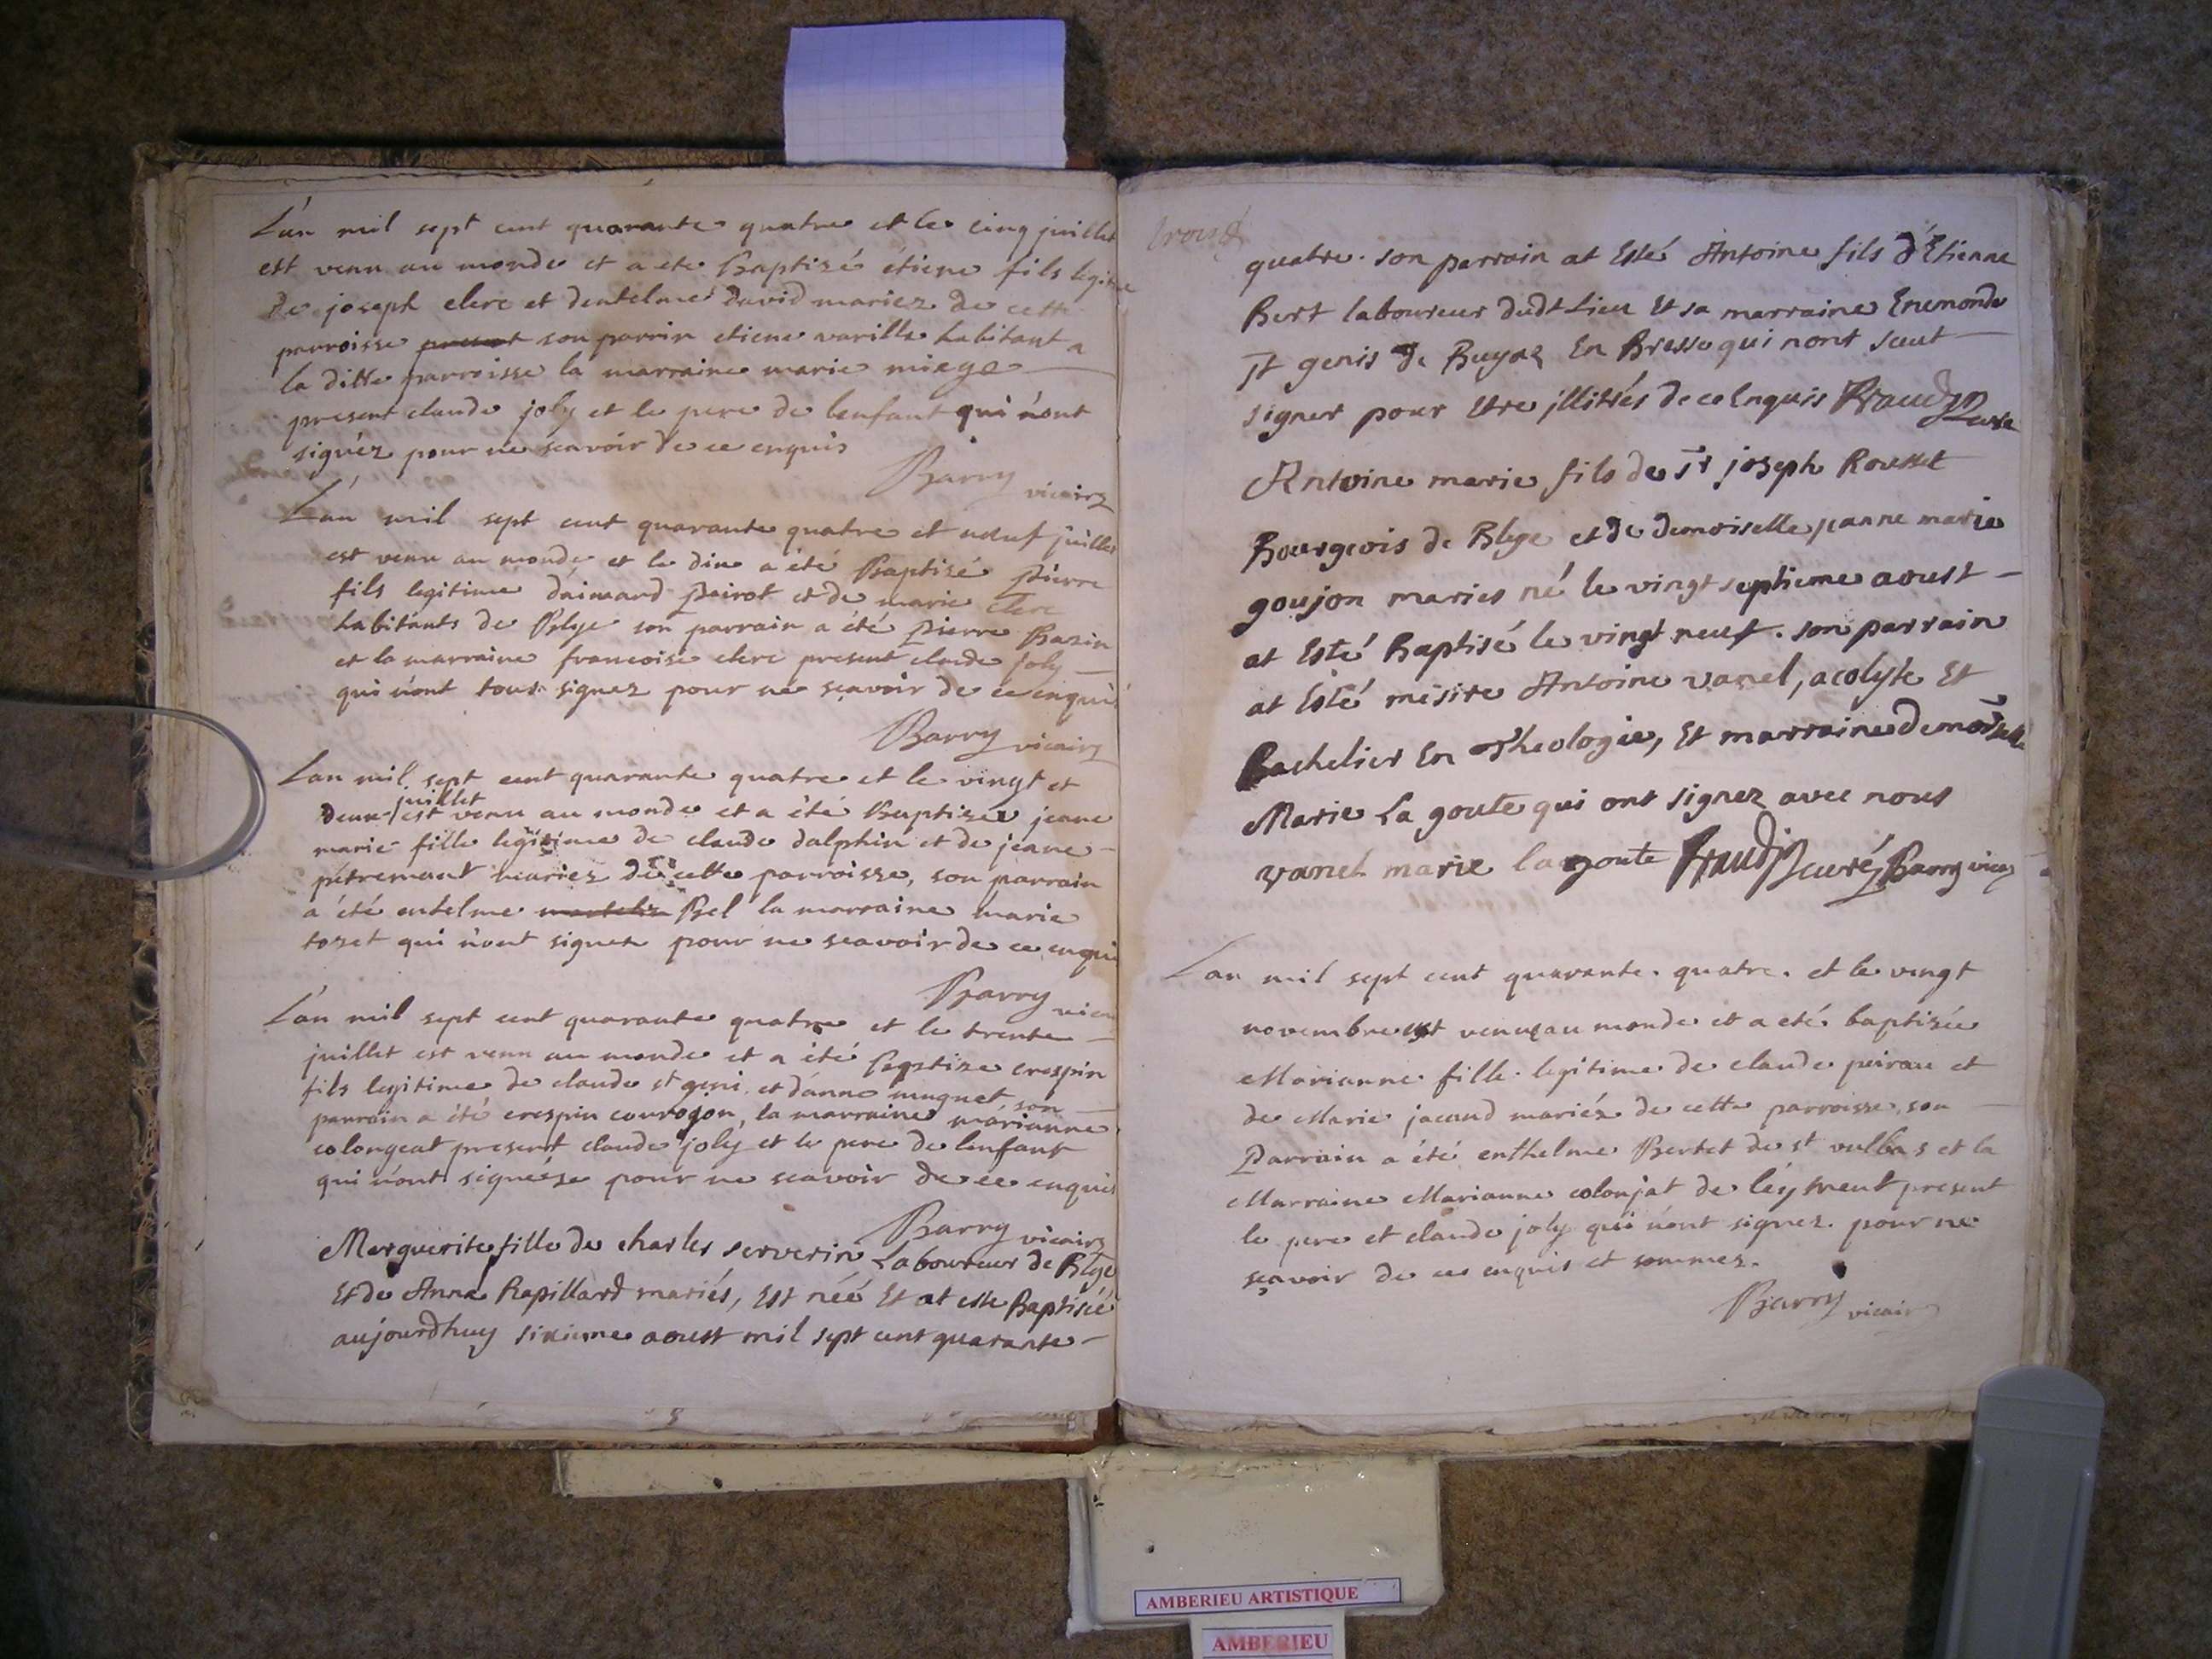 L'an mil sept cent quarante quatre et le cinq juillet
est venu au monde et a ete Baptizé étiene fils legitime
de joseph clerc et dentelme david mariez de cette
parroisse present son parrin etiene varille habitant a
la ditte parroisse la marraine marie miege
present claude joly et le pere de lenfant qui n'ont
signéz pour ne scavoir de ce enquis
Barry vicaire
L'an mil sept cent quarante quatre et neuf juillet
est venu au monde et le dix a été Baptizé pierre
fils legitime d'aimard peirot et de marie clerc
habitants de Blye son parrain a été pierre Bazin
et la marraine francoise clerc present claude joly
qui n'ont tous signez pour ne sçavoir de ce enquis
Barry vicaire
Lan mil sept cent quarante quatre et le vingt et
juillet
deux / est venu au monde et a été Baptizée jeane
marie fille legitime de claude dalphin et de jeane
pétremant mariez de cette parroisse, son parrain
a été entelme Bel la marraine marie
toret qui n'ont signez pour ne scavoir de ce enqui
Barry vica
L'an mil sept cent quarante quatre et le trente
juillet est venu au monde et a été Baptize crespin
fils legitime de claude st geni et d'anne muguet son
parrain a été crespin courajon, la marraine marianne
colongeat present claude joly et le pere de lenfant
qui n'ont signéze pour ne scavoir de ce enquis
Barry vicaire
Marguerite fille de charles serverin Laboureur de Blye
Et de Anna Rapillard mariés, Est néé Et at esté Baptiséé
aujourdhuy sixieme aoust mil sept cent quarante
quatre. son parrain at Esté Antoine fils d'Etienne
Bert laboureur dudt Lieu Et sa marraine Enemonde
St genis de Buyaz En Bresse qui nont sceut
signer pour Etre jllitrés de ce Enquis curé
Antoine marie fils de Sr joseph Rousset
Bourgeois de Blye et de demoiselle jeanne marie
goujon mariés né le vingt septieme aoust
at Esté Baptisé le vingt neuf. son parrain
at Esté mesire Antoine vanel, acolyte Et
Bachelier En Theologie, Et marraine demoiselle
Marie La goute qui ont signez avec nous
vanel marie lagoute curé Barry vicaire
Lan mil sept cent quarante. quatre. et le vingt
novembre est venue au monde et a eté baptizée
Marianne fille. legitime de claude peirau et
de Marie jacaud mariéz de cette parroisse, son
Parrain a été enthelme Bertet de st vulbas et la
Marraine Marianne colonjat de léyment present
le pere et claude joly qui n'ont signez. pour ne
sçavoir de ce enquis et sommez.
Barry vicaire
AMBERIEU ARTISTIQUE
AMBERIEU